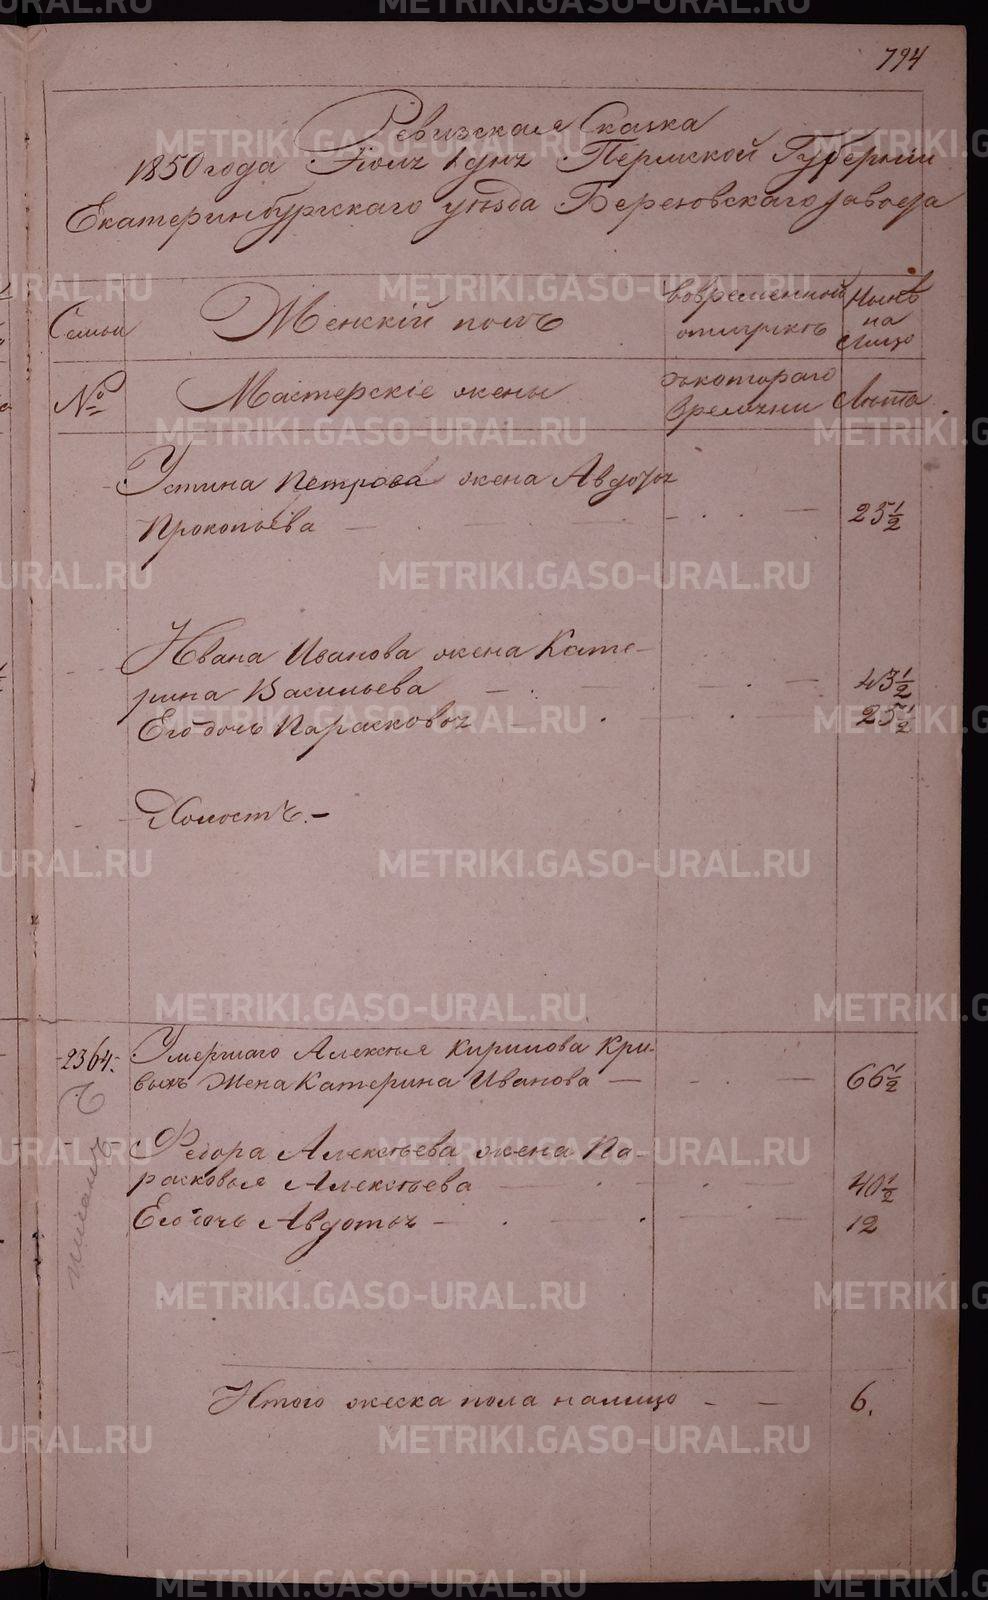 794
Ревизская Сказка
1850 года Іюля 1 дня Пермской Губерніи
Екатеринбургскаго уѣзда Березовскаго завода
Семьи
Женскій полъ
во временной отлучкѣ
Нынѣ на лицо
№
Мастерскіе жены
съ котораго времени
Лѣта.
Устина Петрова жена Авдотья
Прокопьева — 25 1/2
Ивана Иванова жена Кате-
рина Васильева — 43 1/2
Его дочь Парасковья 25 1/2
Холостъ.-
-2364.- Умершаго Алексѣя Кирилова Кри-
выхъ Жена Катерина Иванова — 66 1/2
Федора Алексѣева жена Па-
расковья Алексѣева 40 1/2
Его дочь Авдотья - 12
Итого женска пола налицо - 6.
METRIKI.GASO-URAL.RU